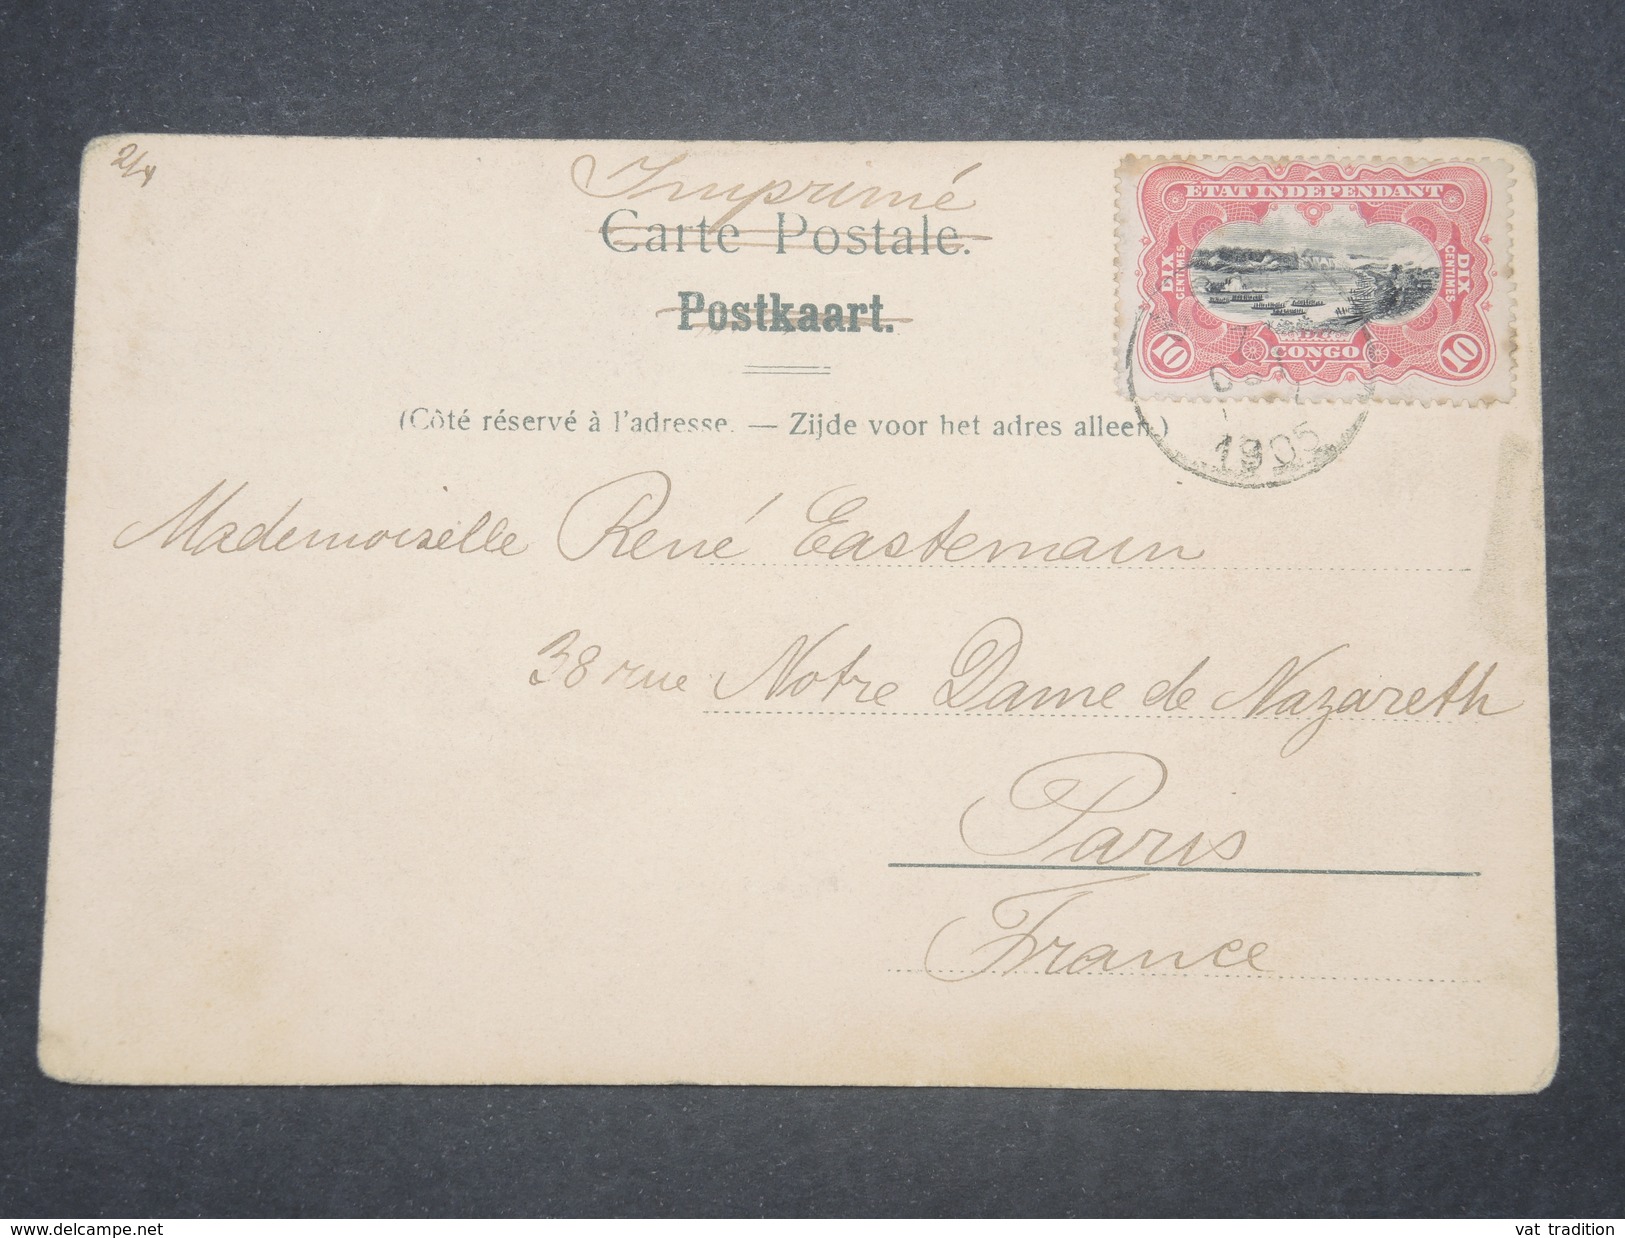 2/4
Imprimé
Carte Postale.
Postkaart.
(Côté réservé à l'adresse. — Zijde voor het adres alleen.)
ÉTAT INDÉPENDANT
DIX CENTIMES
DIX CENTIMES
10
CONGO
10
1905
Mademoiselle René Eastemain
38 rue Notre Dame de Nazareth
Paris
France
www.delcampe.net
vat tradition